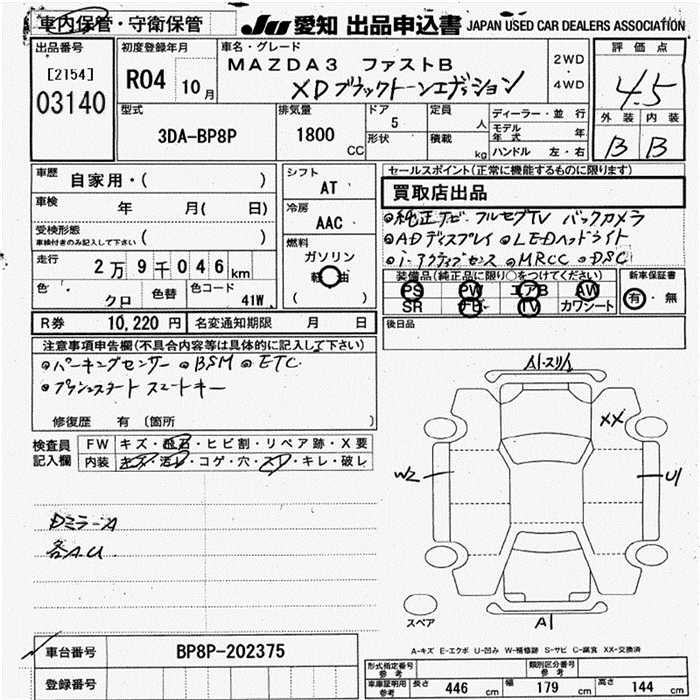 車内保管・守衛保管
JU 愛知 出品申込書 JAPAN USED CAR DEALERS ASSOCIATION
出品番号
[2154]
03140
初度登録年月
R04 10月
車名・グレード
MAZDA3 ファストB
XDブラックトーンエディション
2WD
・
4WD
評価点
4.5
外装 内装
B B
型式
3DA-BP8P
排気量
1800 CC
ドア
5
形状
定員
人
積載
kg
ディーラー・並行
モデル年式 年
ハンドル 左・右
車歴
自家用・( )
車検
年 月( 日)
受検形態
車検付きのみ記入して下さい ( )
走行
2万9千046km
色
クロ
色替
色コード
41W
シフト
AT
冷房
AAC
燃料
ガソリン
軽油
( )
セールスポイント(正常に機能するものに限ります)
買取店出品
◎純正ナビ フルセグTV バックカメラ
◎ADディスプレイ ◎LEDヘッドライト
◎i-アクティブセンス ◎MRCC ◎DSC
装備品(純正品に限り○をつけてください)
PS PW エアB AW
SR ナビ TV カワシート
新車保証書
有・無
R券 10,220円 名変通知期限 月 日
後日品
注意事項申告欄(不具合内容等は具体的に記入して下さい)
◎パーキングセンサー ◎BSM ◎ETC
◎プッシュスタート スマートキー
修復歴 有 〔箇所 〕
検査員
記入欄
FW キズ・飛石・ヒビ割・リペア跡・X要
内装 キズ・汚レ・コゲ・穴・スレ・キレ・破レ
Dミラー A
各A.U.
A1.スリA
XX
W2
U1
スペア
A1
A-キズ E-エクボ U-凹み W-補修跡 S-サビ C-腐食 XX-交換済
車台番号 BP8P-202375
登録番号
形式指定番号
参考
類別区分番号
参考
車庫証明用
参考
長さ 446 cm 幅 179 cm 高さ 144 cm